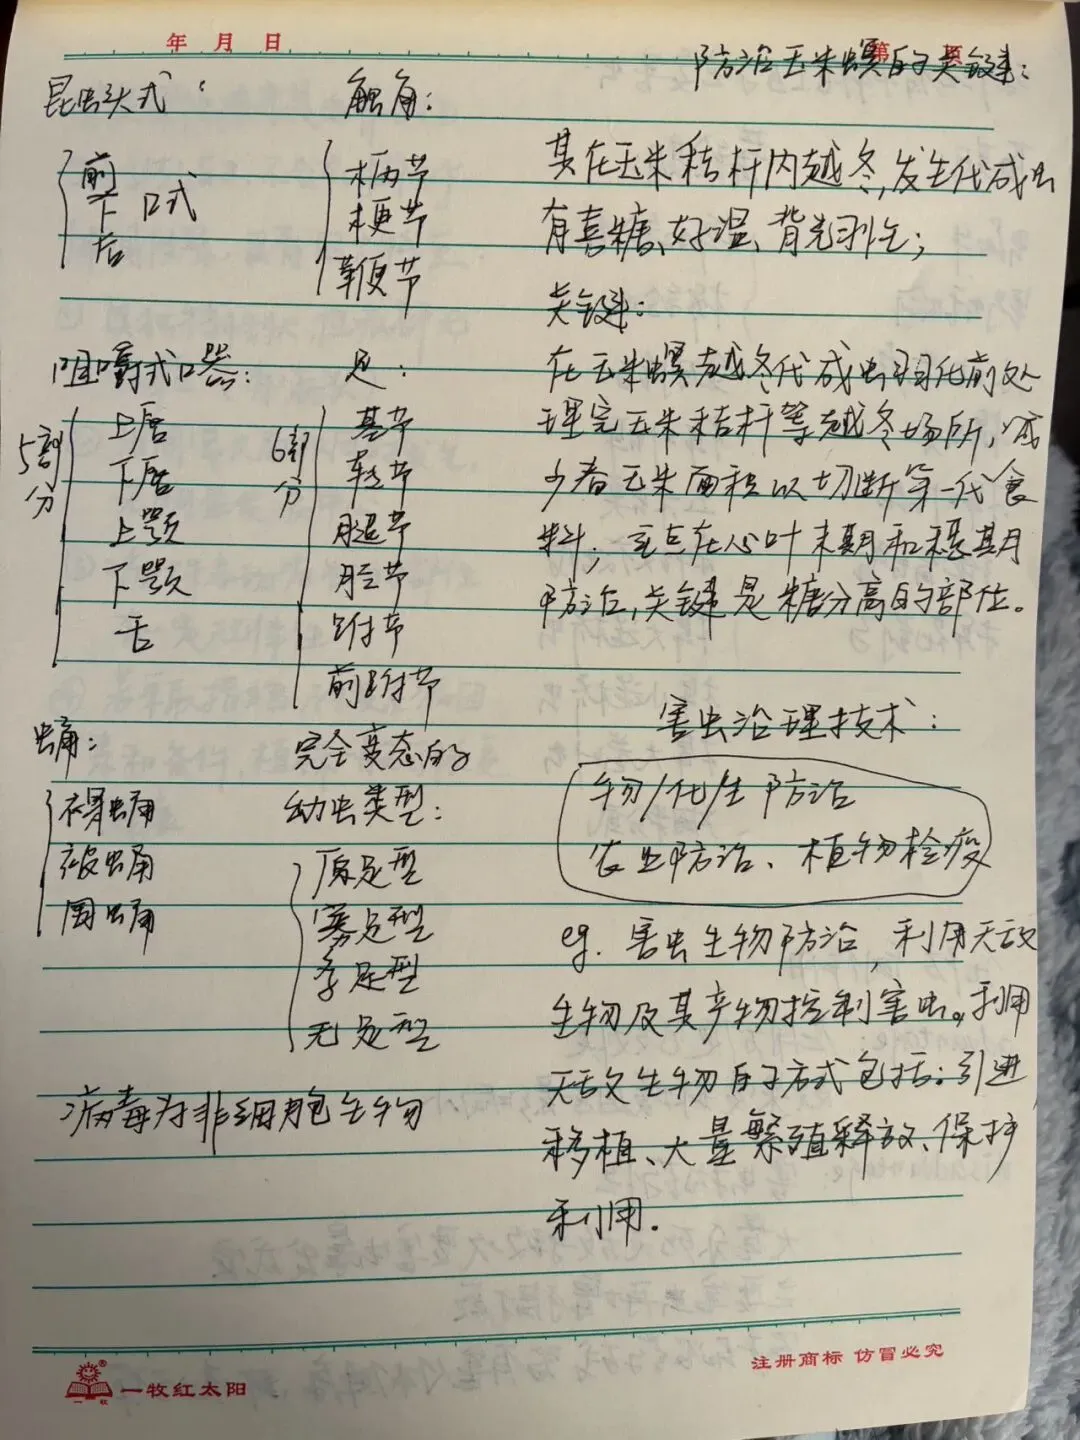 年 月 日
第 页
昆虫头式：
前
下 口式
后
触角：
柄节
梗节
鞭节
咀嚼式口器：
5部分
上唇
下唇
上颚
下颚
舌
足：
6部分
基节
转节
腿节
胫节
跗节
前跗节
蛹：
裸蛹
被蛹
围蛹
完全变态的
幼虫类型：
原足型
寡足型
多足型
无足型
病毒为非细胞生物
防治玉米螟的关键：
其在玉米秸杆内越冬，发生代成虫
有喜糖、好湿、背光习性；
关键：
在玉米螟越冬代成虫羽化前处
理完玉米秸杆等越冬场所，减
少春玉米面积以切断第一代食
料，重点在心叶末期和穗期
防治，关键是糖分高的部位。
害虫治理技术：
物/化/生防治
农业防治、植物检疫
eg. 害虫生物防治，利用天敌
生物及其产物控制害虫。利用
天敌生物的方式包括：引进
移植、大量繁殖释放、保护
利用.
一牧红太阳
注册商标 仿冒必究